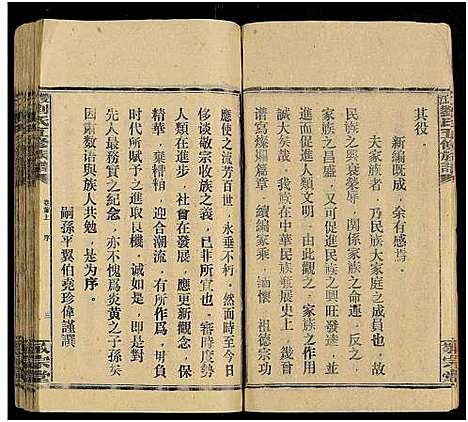 其役。
新編既成，余有感焉。
夫家族者，乃民族大家庭之成員也，故
民族之興衰榮辱，關係家族之命運，反之，
家族之昌盛，又可以民族之興旺發達，並
進而促進人類之進步，由此觀之，家族之作用
誠大矣哉，我族在中華民族發展史上，幾曾
譜寫燦爛篇章，續編家乘，緬懷祖德宗功
應使之流芳百世，永垂不朽。然而時至今日
人類在進步，社會在發展，應更新觀念，
侈談敬宗收族，已非所宜也。審時度勢
精華，棄糟粕，迎合潮流，有所作為，毋負
時代所賦予之良機，誠如是，即是對
先人最好之紀念，亦不愧爲炎黃之子孫矣
因兩數語與族人共勉，是为序。
嗣孫平翼伯堯珍偉謹譔
卷首上 序 三
敦宗堂